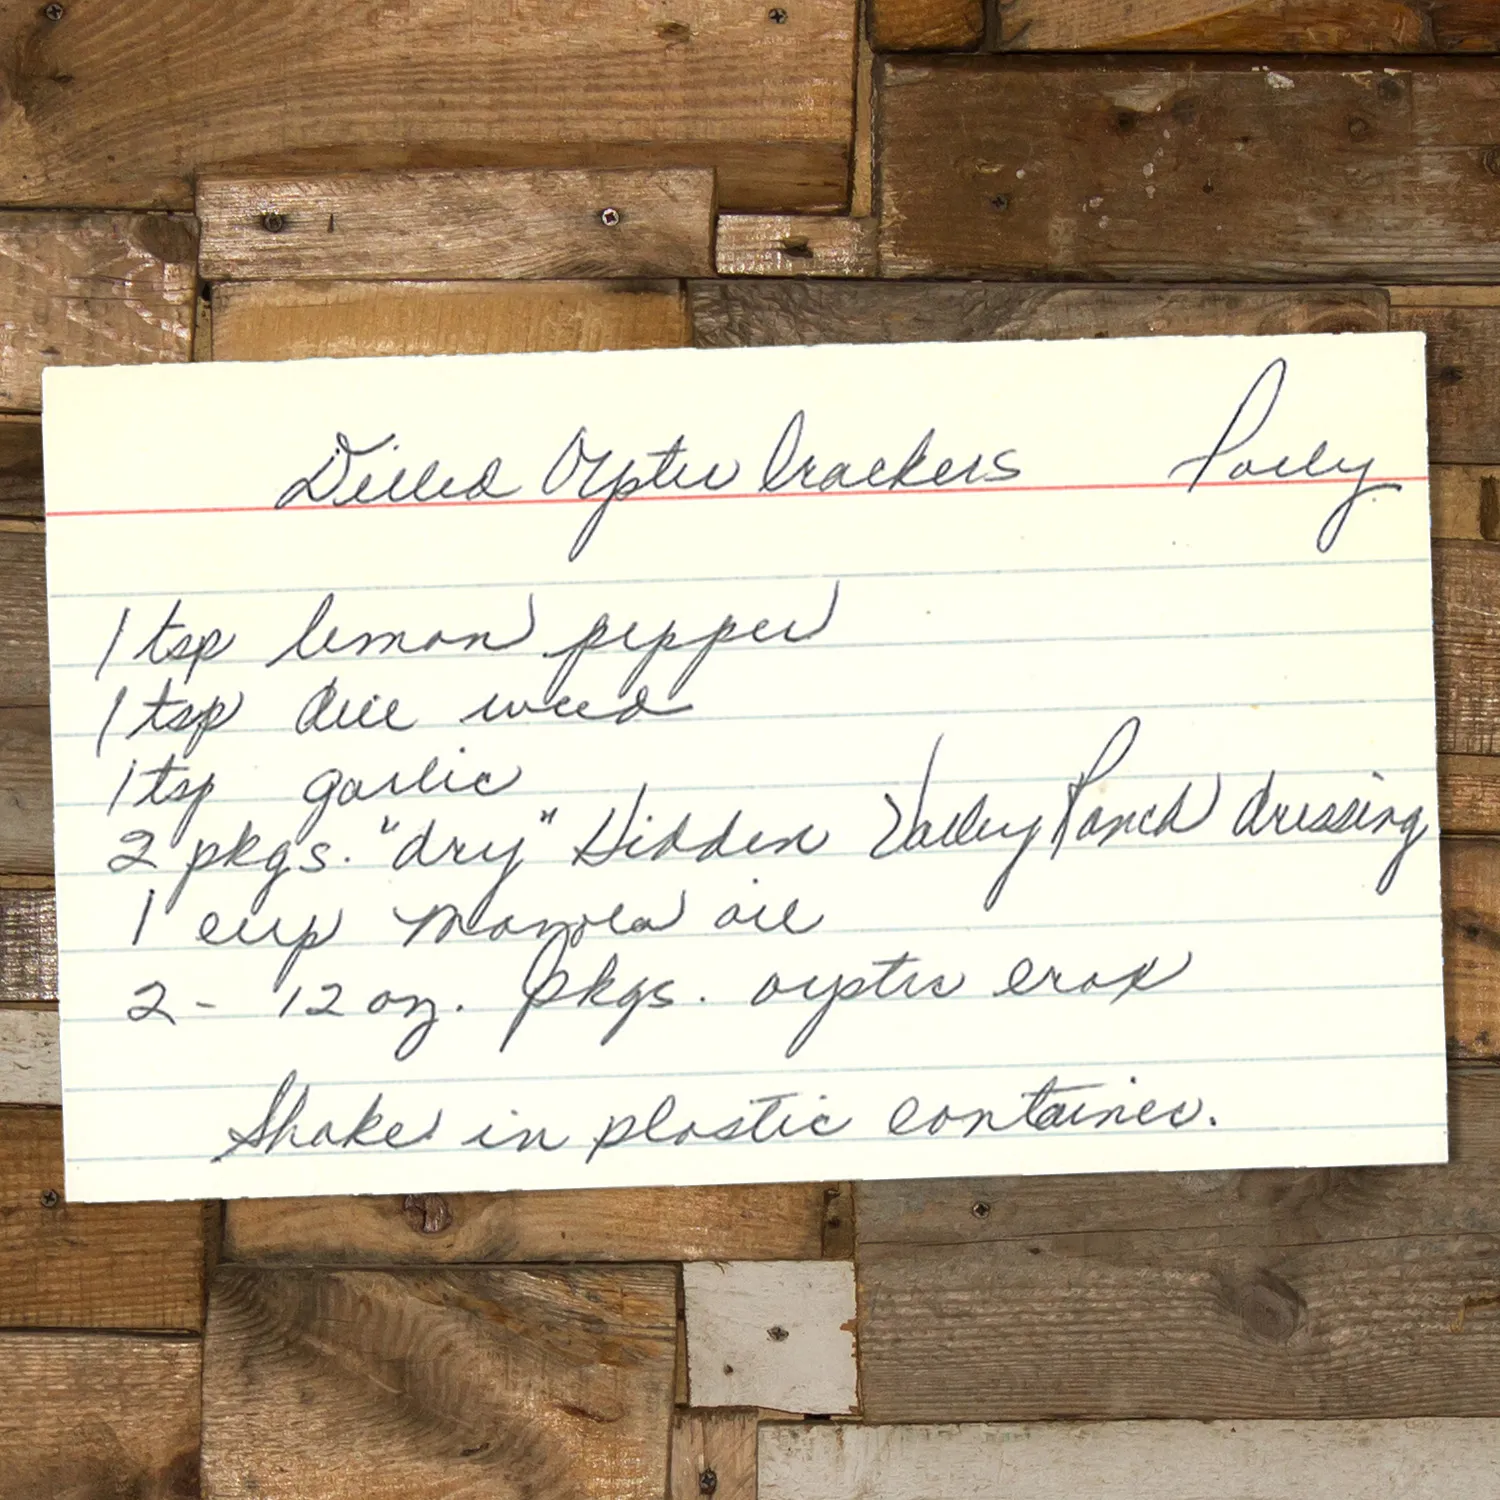 Dilled Oyster Crackers Polly
1 tsp lemon pepper
1 tsp dill weed
1 tsp garlic
2 pkgs. "dry" Hidden Valley Ranch dressing
1 cup oil
2 - 12 oz. pkgs. oyster crax
Shake in plastic container.